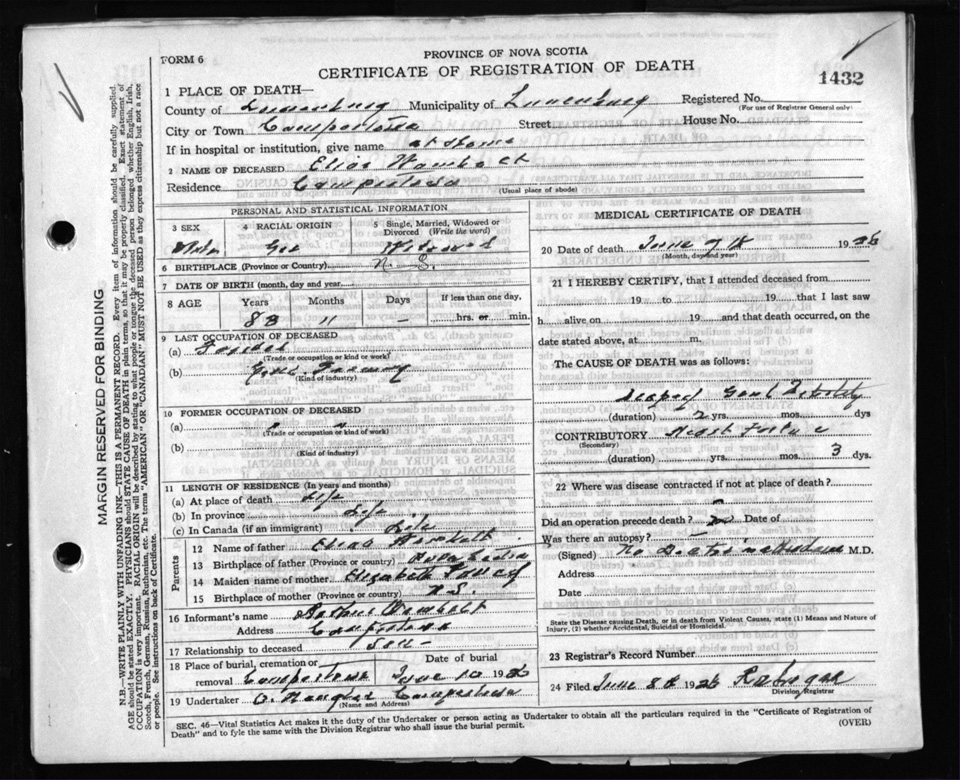 PROVINCE OF NOVA SCOTIA
FORM 6
CERTIFICATE OF REGISTRATION OF DEATH
1432
1 PLACE OF DEATH—
County of Lunenburg Municipality of Lunenburg Registered No.
(For use of Registrar General only)
City or Town Street House No.
If in hospital or institution, give name at Home
2 NAME OF DECEASED
Residence
(Usual place of abode)
PERSONAL AND STATISTICAL INFORMATION
3 SEX 4 RACIAL ORIGIN 5 Single, Married, Widowed or Divorced (Write the word)
Ger
6 BIRTHPLACE (Province or Country) N. S.
7 DATE OF BIRTH (month, day and year)
8 AGE Years Months Days If less than one day,
83 11 - hrs. or min.
9 LAST OCCUPATION OF DECEASED
(a)
(Trade or occupation or kind of work)
(b)
(Kind of industry)
10 FORMER OCCUPATION OF DECEASED
(a)
(Trade or occupation or kind of work)
(b)
(Kind of industry)
11 LENGTH OF RESIDENCE (In years and months)
(a) At place of death Life
(b) In province Life
(c) In Canada (if an immigrant) Life
Parents
12 Name of father
13 Birthplace of father (Province or country) Nova Scotia
14 Maiden name of mother Elizabeth
15 Birthplace of mother (Province or country) N.S.
16 Informant's name
Address
17 Relationship to deceased Son
18 Place of burial, cremation or removal Date of burial
June 10 1926
19 Undertaker
(Name and Address)
MEDICAL CERTIFICATE OF DEATH
20 Date of death June 7th 1926
(Month, day and year)
21 I HEREBY CERTIFY, that I attended deceased from
19 to 19 that I last saw
h alive on 19 and that death occurred, on the
date stated above, at m.
The CAUSE OF DEATH was as follows:
(duration) 2 yrs. mos. dys
CONTRIBUTORY Heart Failure
(Secondary)
(duration) yrs. mos. 3 dys.
22 Where was disease contracted if not at place of death?
Did an operation precede death? no Date of
Was there an autopsy?
(Signed) No Doctor in attendance M.D.
Address
Date
State the Disease causing Death, or in death from Violent Causes, state (1) Means and Nature of Injury, (2) whether Accidental, Suicidal or Homicidal.
23 Registrar's Record Number
24 Filed June 8th 1926
Division Registrar
SEC. 46—Vital Statistics Act makes it the duty of the Undertaker or person acting as Undertaker to obtain all the particulars required in the "Certificate of Registration of
Death" and to fyle the same with the Division Registrar who shall issue the burial permit. (OVER)
MARGIN RESERVED FOR BINDING
N.B.—WRITE PLAINLY WITH UNFADING INK—THIS IS A PERMANENT RECORD. Every item of information should be carefully supplied.
AGE should be stated EXACTLY. PHYSICIANS should STATE CAUSE OF DEATH in plain terms, so that it may be properly classified. Exact statement of
OCCUPATION is very important. RACIAL ORIGIN will be described by stating to what people or tongue the deceased person belonged whether English, Irish,
Scotch, French, German, Russian, Ruthenian, etc. The terms "AMERICAN" OR "CANADIAN" MUST NOT BE USED as they express citizenship but not a race
or people. See instructions on back of Certificate.